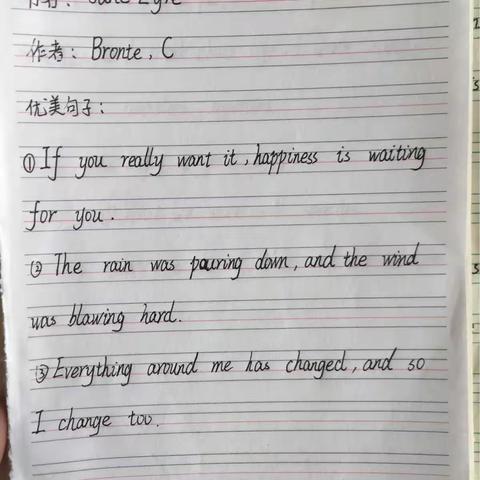 书名： Jane Eyre
作者： Bronte, C
优美句子：
①If you really want it, happiness is waiting
for you.
② The rain was pouring down, and the wind
was blawing hard.
③Everything around me has changed, and so
I change too.